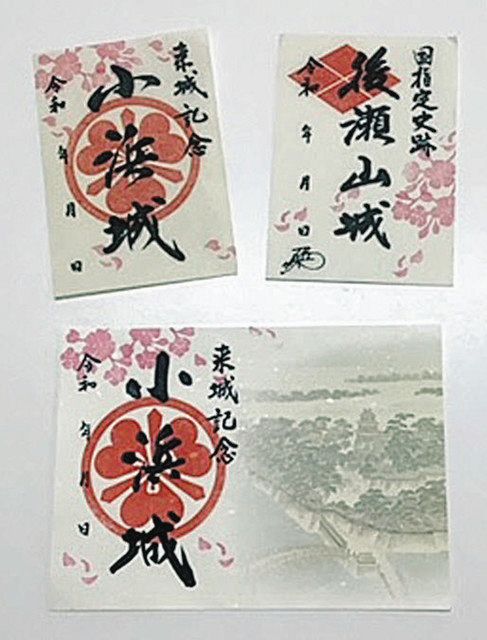 来城記念
小浜城
令和 年 月 日
国指定史跡
後瀬山城
令和 年 月 日
来城記念
小浜城
令和 年 月 日